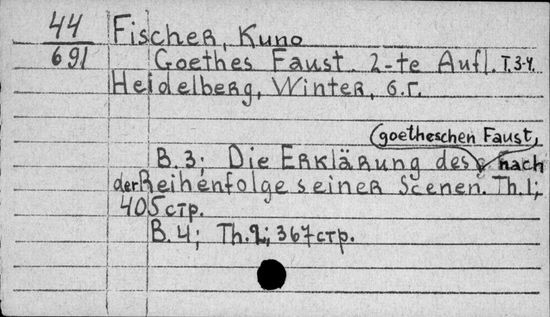 44
691
Fischer, Kuno
Goethes Faust 2-te Aufl. T.3-4.
Heidelberg, Winter, б.г.
goetheschen Faust,
B.3; Die Erklärung des nach
der Reihenfolge seiner Scenen. Th.1;
405 стр.
B.4; Th.2; 367 стр.